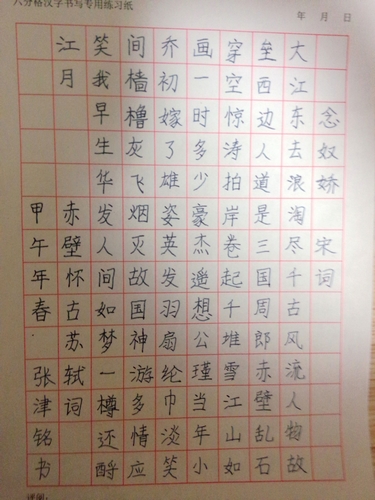 六分格汉字书写专用练习纸
年 月 日
念奴娇 宋词
大江东去浪淘尽千古风流人物故
垒西边人道是三国周郎赤壁乱石
穿空惊涛拍岸卷起千堆雪江山如
画一时多少豪杰遥想公瑾当年小
乔初嫁了雄姿英发羽扇纶巾淡笑
间樯橹灰飞烟灭故国神游多情应
笑我早生华发人间如梦一樽还酹
江月 赤壁怀古苏轼词
甲午年春 张津铭书